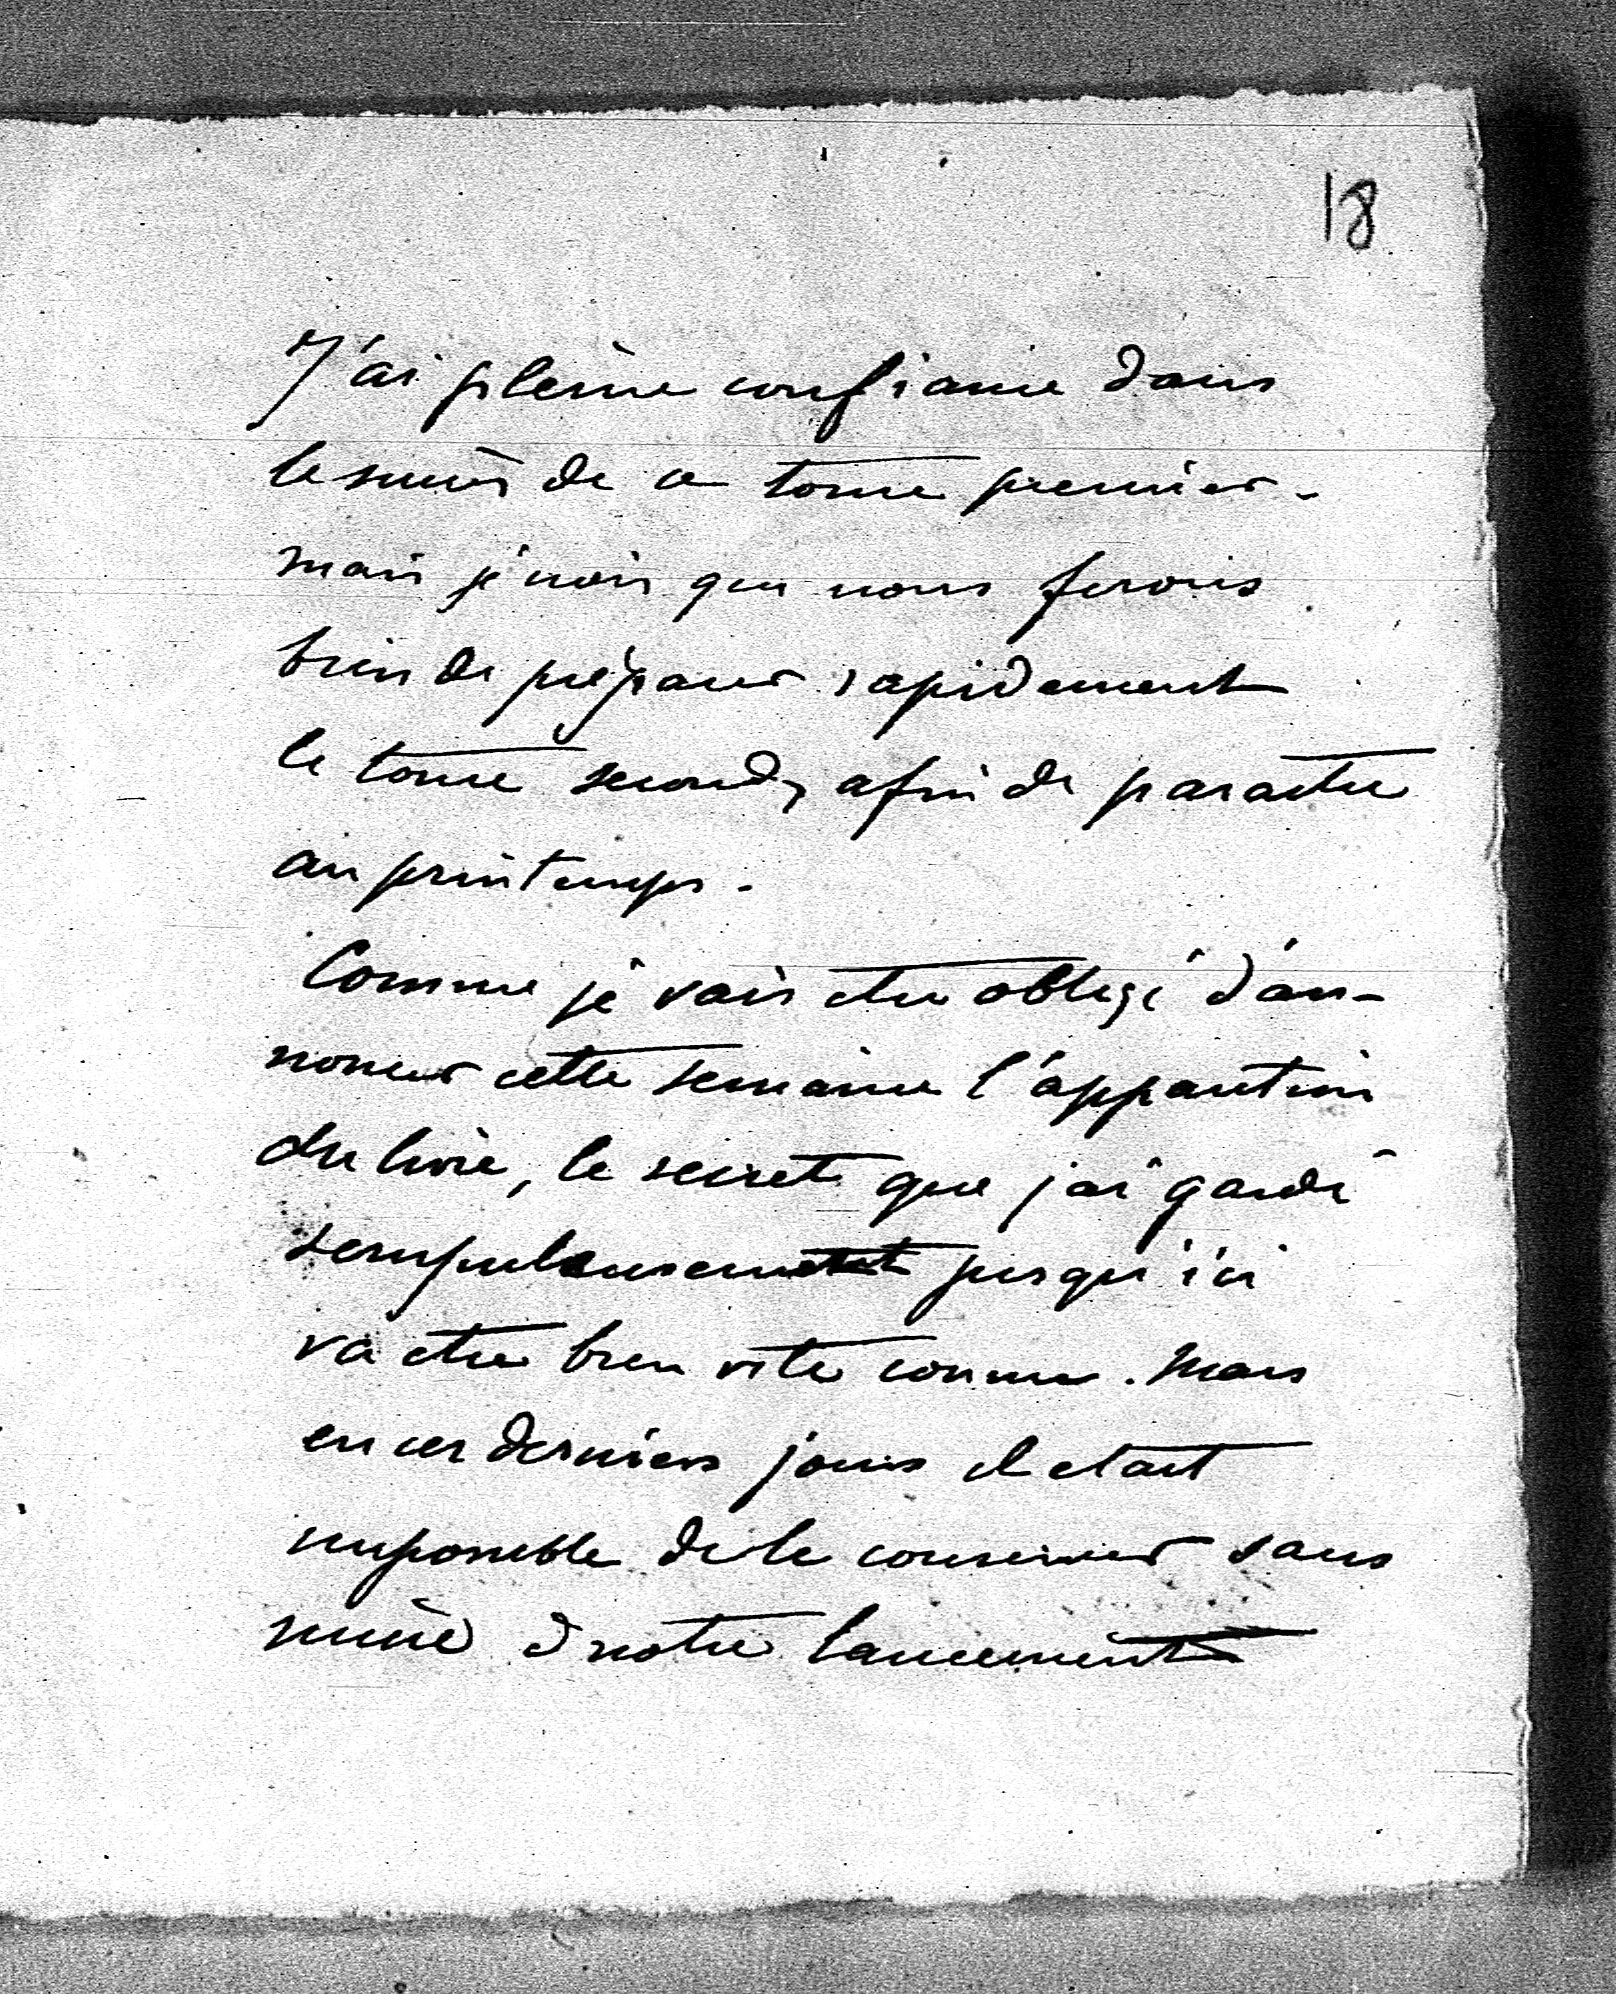 18
J'ai pleine confiance dans
le succès de ce tome premier.
mais je crois que nous ferons
bien de préparer rapidement
le tome second, afin de paraitre
au printemps.
Comme je vais etre obligé d'an-
noncer cette semaine l'apparition
du livre, le secret que j'ai gardé
scrupuleusement jusqu'ici
va etre bien vite connu. Mais
en ces derniers jours il etait
impossible de le conserver sans
nuire à notre lancement